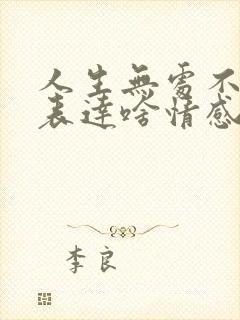 人生無處不
表達啥情感
李良